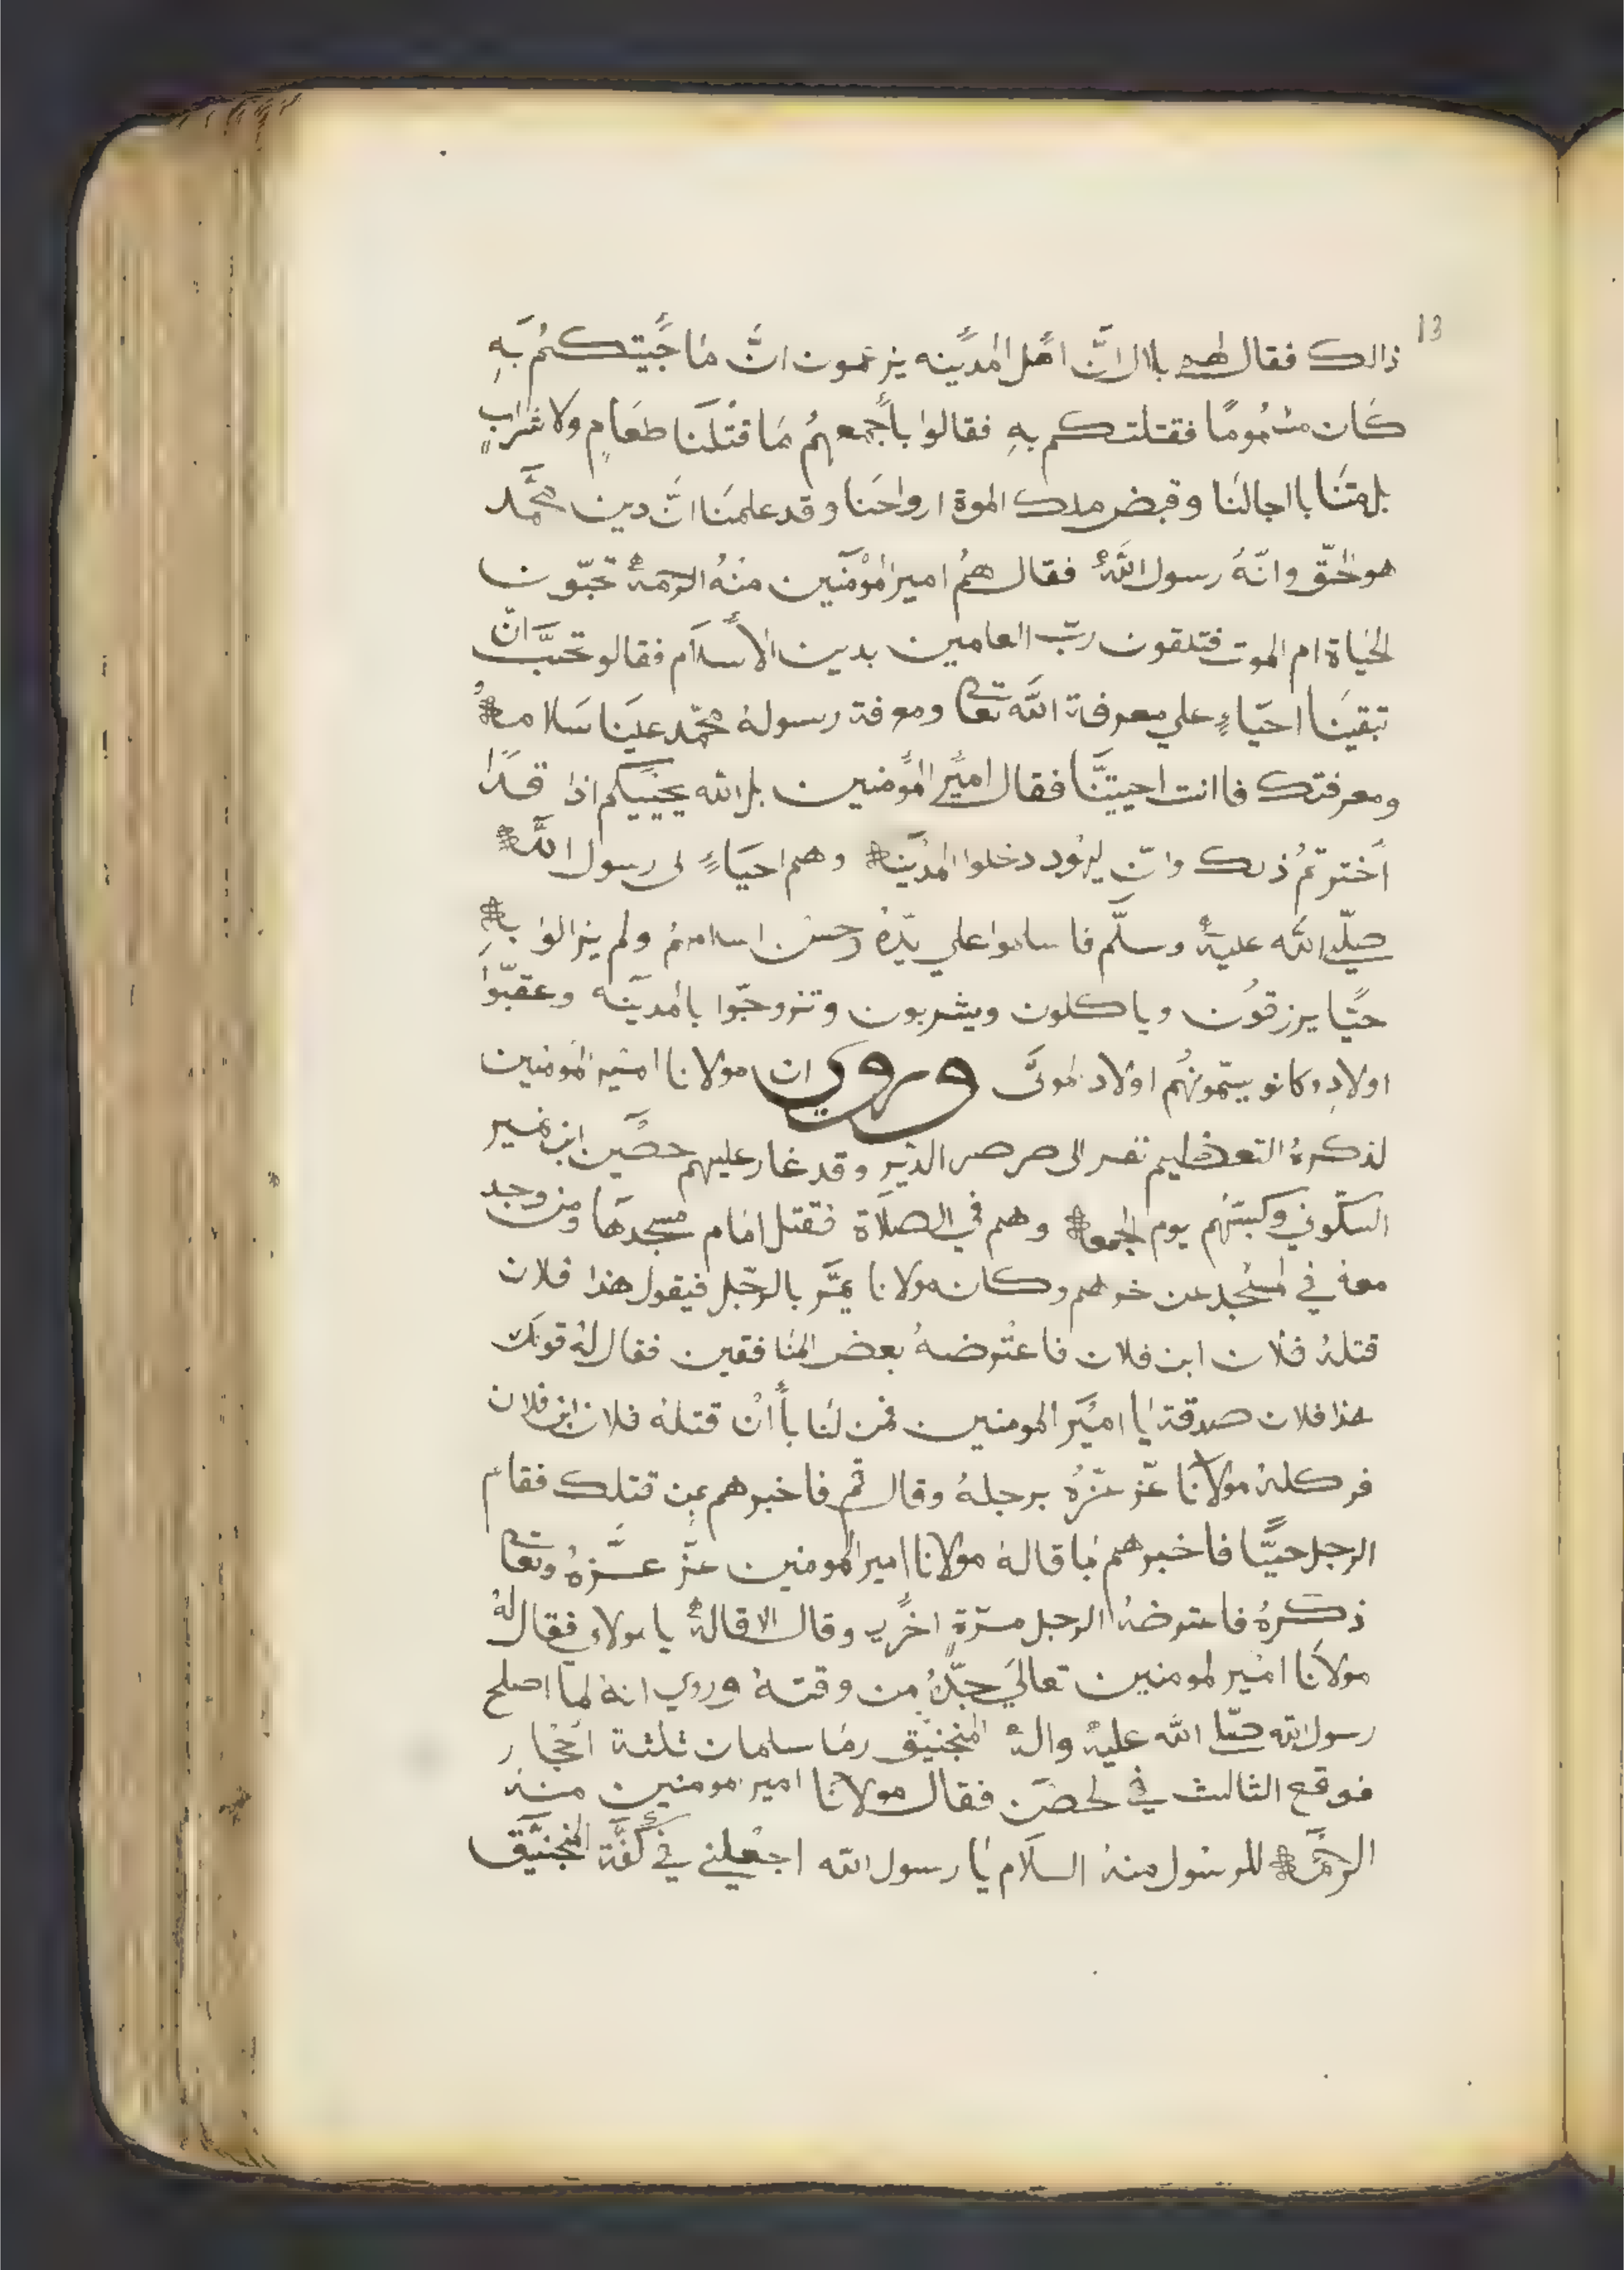 13
ذالك فقال لهم بلال انّ اهل المدينه يزعمون انّ ما جيتكم به
كان مسمومًا فقتلتكم به فقالوا بأجمعهم ما قتلنا طعام ولا شراب
بل متنا بااجالنا وقبض ملك الموة ارواحنا وقد علمنا انّ دين محمّد
هو الحقّ وانّه رسول اللّه فقال لهم امير المؤمنين منه الرحمة تحبّون
الحياة ام الموت فتلقون ربّ العامين بدين الأسلام فقالو نحبّ انّ
تبقينا احيّاء علي معرفة اللّه تعا ومعرفة رسوله محمّد علينا سلامه
ومعرفتك فاانت احييتنّا فقال امير المؤمنين بل اللّه يحييكم اذا قد
أخترتم ذلك وانّ ليهود دخلوا المدينة وهم احياء لى رسول اللّه
صلّى اللّه عليه وسلّم فاسلموا علي يده وحسن اسلامهم ولم يزالوا به
حيّا يرزقون وياكلون ويشربون وتزوجّوا بالمدينه وعقبّوا
اولاد وكانو يسمّونهم اولاد الموتى وروي ان مولانا امير المومنين
لذكره التعظيم نفر الى صرصر الدير وقد غار عليهم حصين ابن نمير
السكوني وكبسهم يوم الجمعة وهم في الصلاة فقتل امام مسجدها ومن وجد
معه في المسجد عن خرهم وكان مولانا يمرّ بالرجل فيقول هذا فلان
قتله فلان ابن فلان فاعترضه بعض المنافقين فقال له قولك
هذا فلان صدقة يا امير المومنين فمن لنا بأن قتله فلان ابن فلان
فركله مولانا عزّ عزّه برجله وقال قم فاخبرهم بمن قتلك فقام
الرجل حيّا فاخبرهم بما قاله مولانا امير المومنين عزّ عزّه وتعا
ذكره فاعترضه الرجل مرّة اخرى وقال الاقالة يا مولاي فقال له
مولانا امير لمومنين تعالى جدّه من وقته وروي انه لما اصلح
رسول اللّه صلّا اللّه عليه واله المنجنيق رما سلمان ثلثة احجار
فوقع الثالث في لحصن فقال مولانا امير مومنين منه
الرحمة للرسول منه السلام يا رسول اللّه اجعلني في كفّة المنجنيق